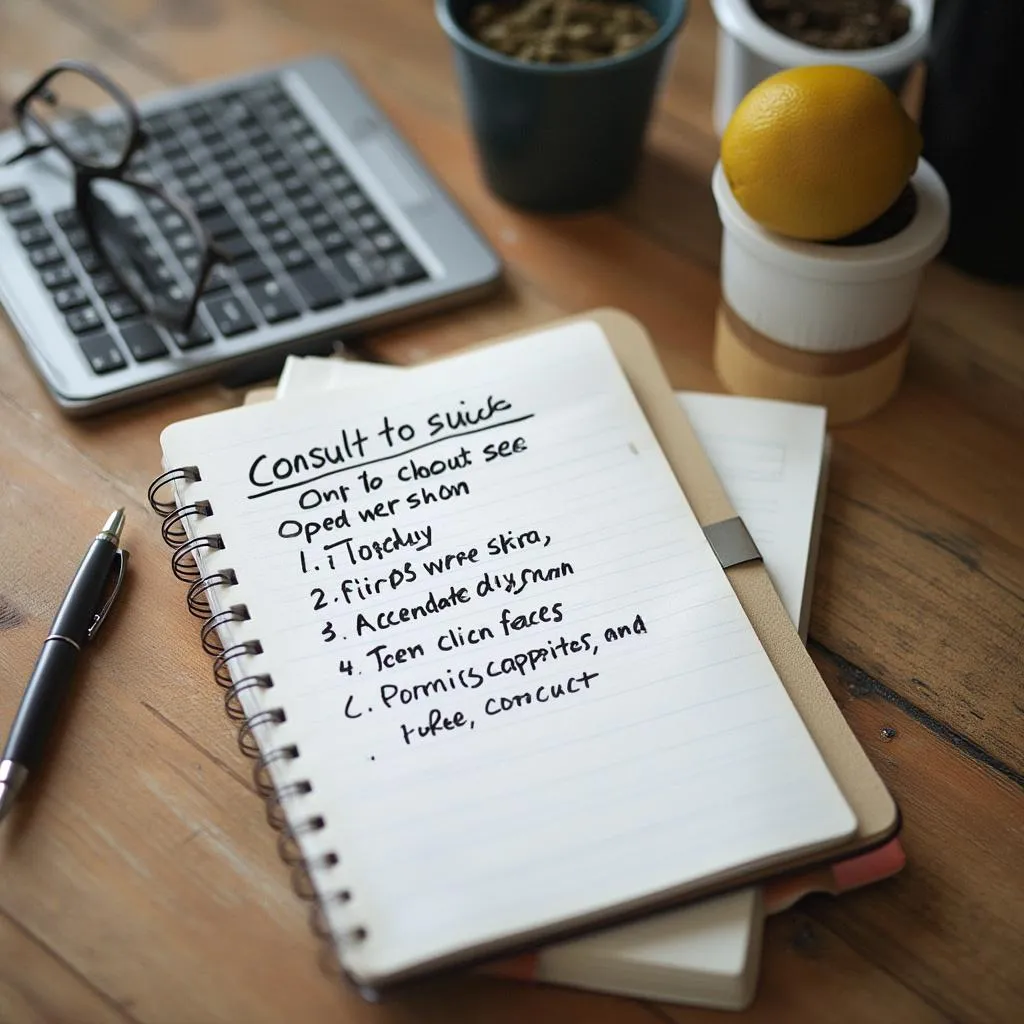 Consult to suick
Onr to cloout see
Oped wer shon
1. iTogcluy
2. fiirDS wrre skra,
3. Accendate diygnan
4. Tcen clicn faces
L. Pormiis cappites, and
tuRee, corcuct